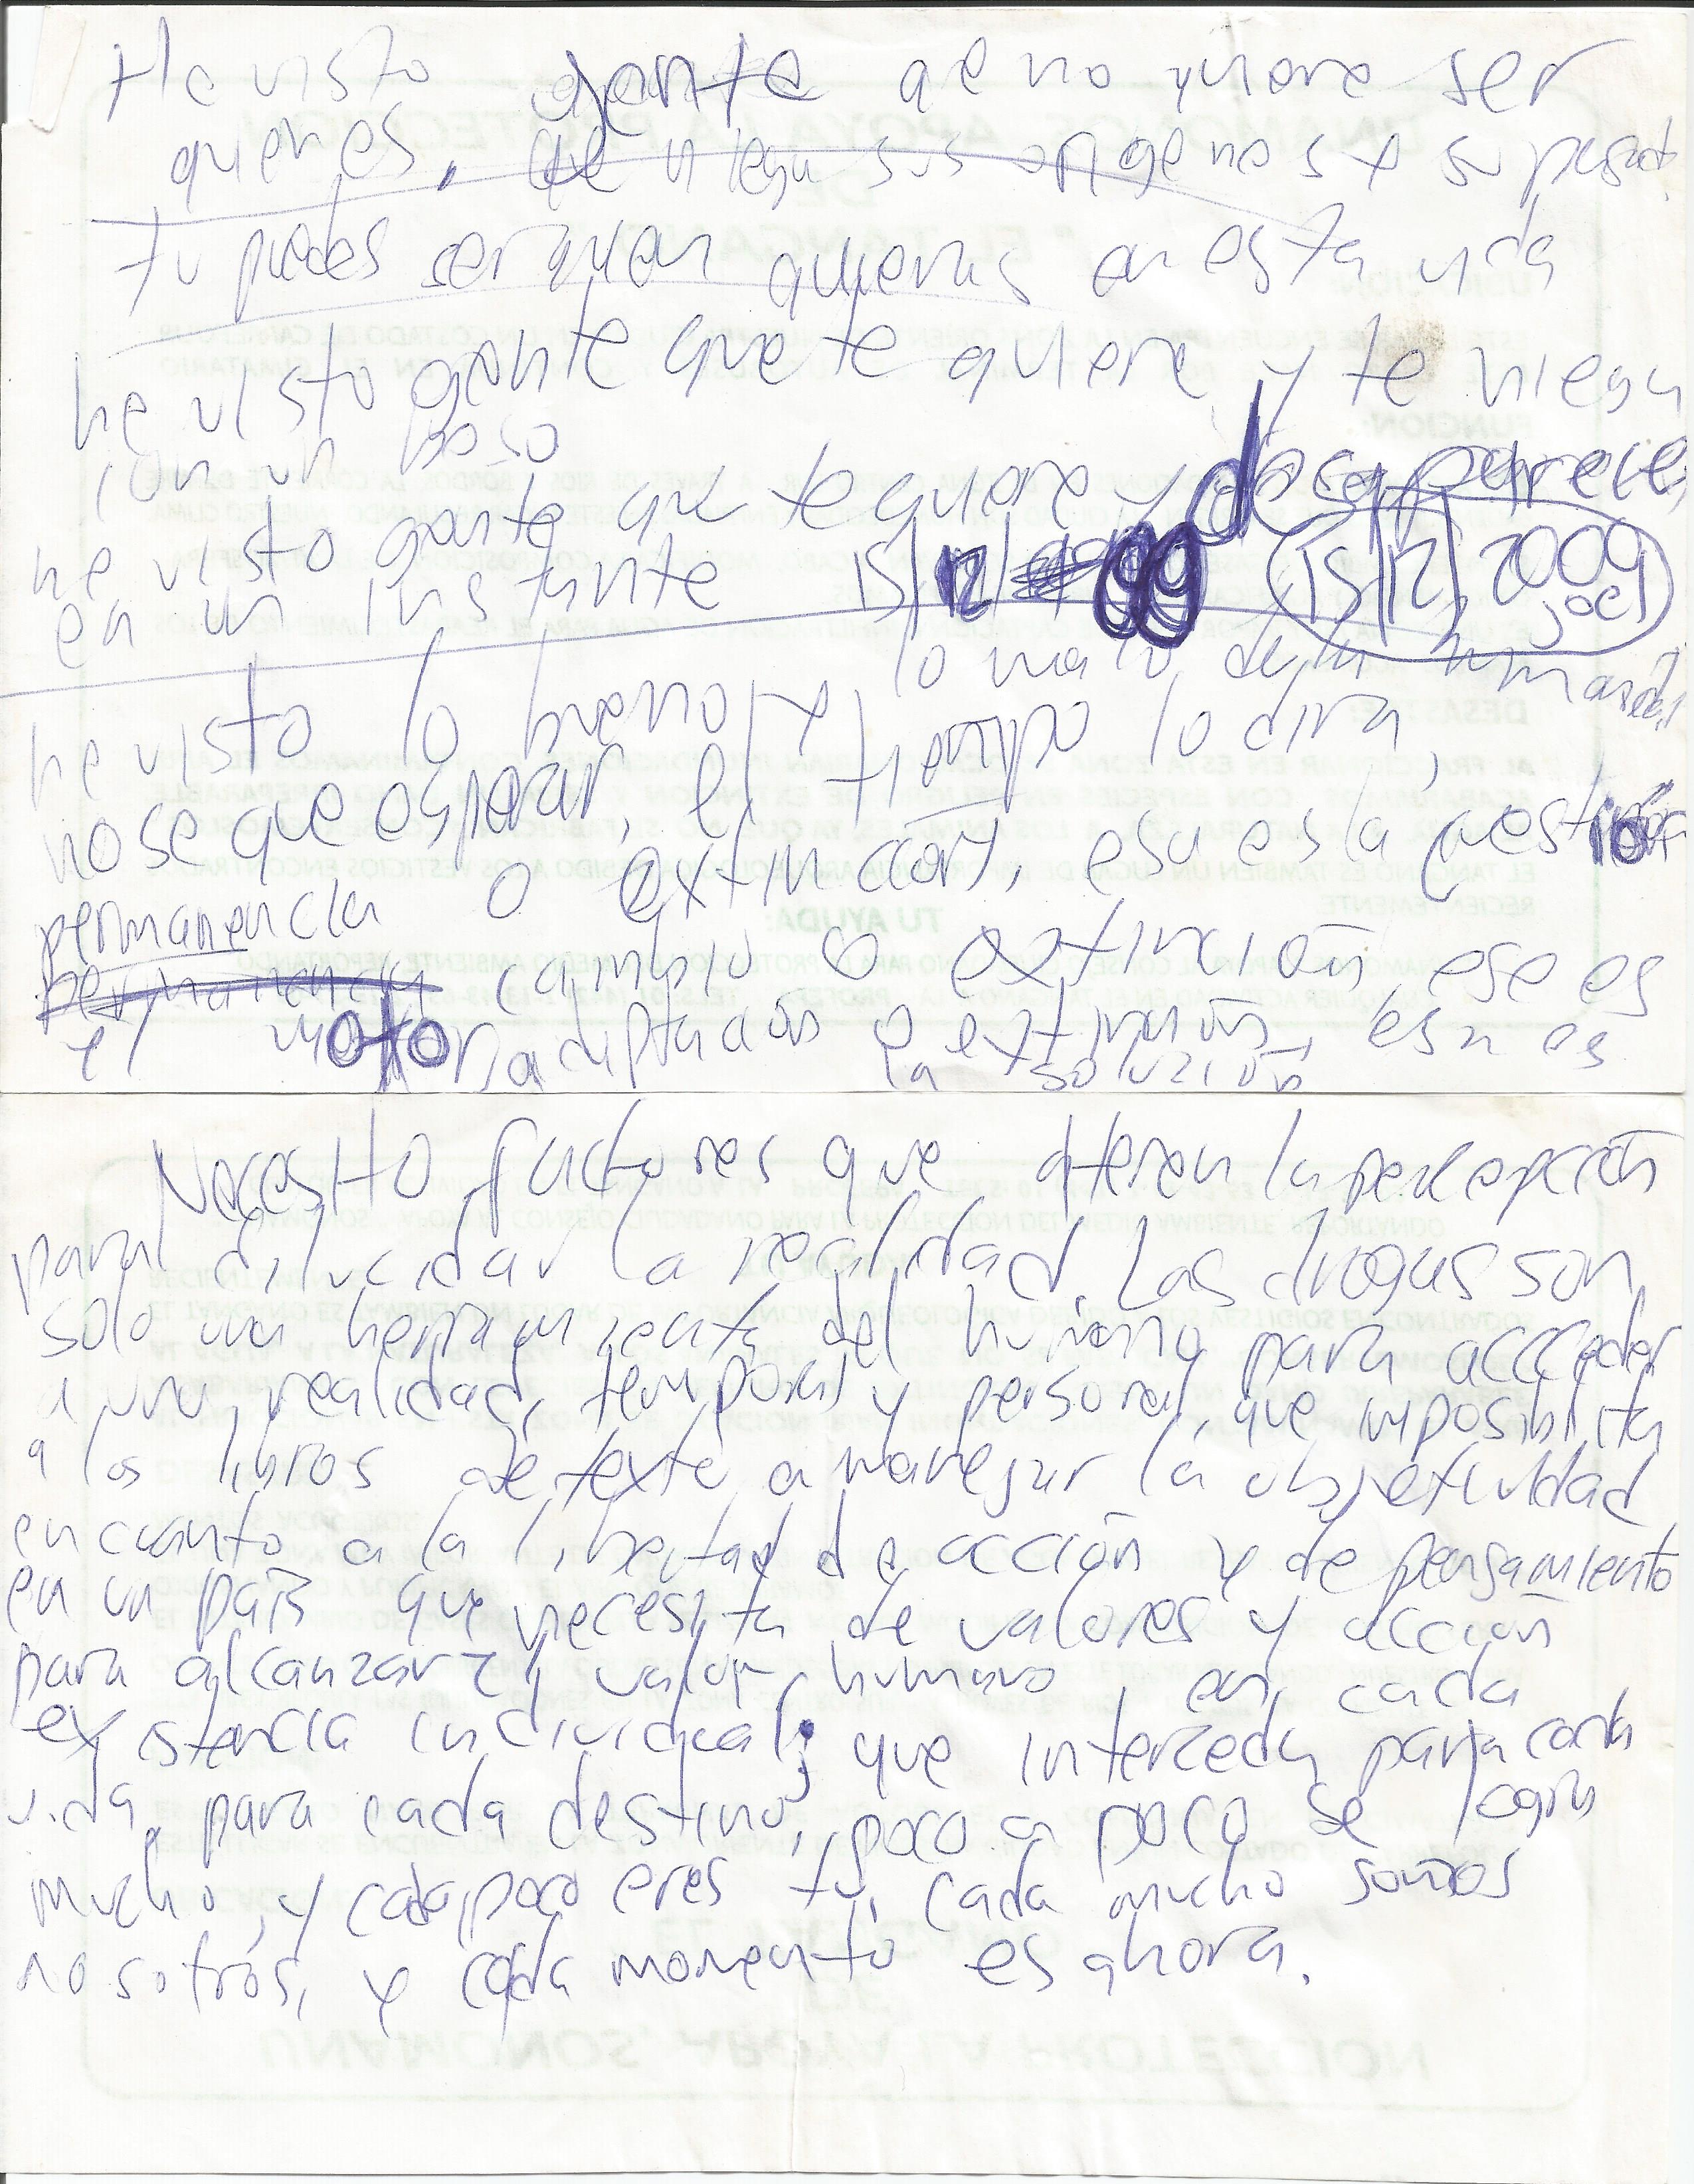 He visto gente que no quiere ser
quien es, que niega sus origenes y su pasado
tu puedes ser quien quieras en esta vida
he visto gente que te quiere y te niega
con un beso
he visto gente que te quiere y desaparece
en un instante 15/12/ 99 15/12/2009
joel
he visto lo bueno y lo malo de la humanidad
no se que esperar, el tiempo lo dira,
permanencia o extinción, esa es la cuestion
permanencia cambio o extinción, ese es
el motor, adaptación o extinción, esa es
la solución
Necesito factores que alteren la percepción
para dilucidar la realidad. Las drogas son
solo una herramienta del humano para acceder
a una realidad, temporal y personal, que imposibilita
a los libros de texto a manejar la objetividad
en cuanto a la libertad de acción y de pensamiento
en un país que necesita de valores y acción
para alcanzar el valor humano en cada
existencia individual; que interceda para cada
vida, para cada destino, poco a poco se logra
mucho, y cada poco eres tu, cada mucho somos
nosotros, y cada momento es ahora.